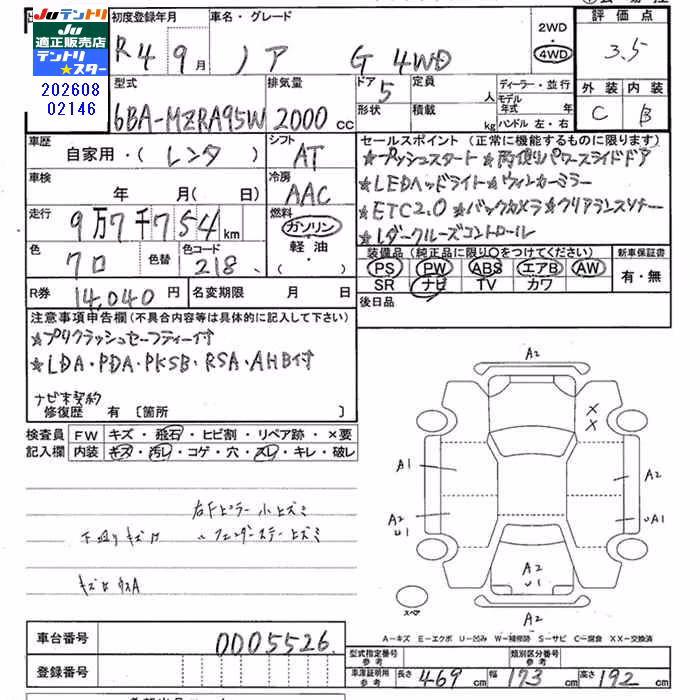 JUテントリ
JU
適正販売店
テントリ
★スター
202608
02146
初度登録年月
R4 9月
車名・グレード
ノア G 4WD
2WD
4WD
評価点
3.5
外装 内装
C B
型式
6BA-MZRA95W
排気量
2000 cc
ドア
5
形状
定員
人
積載
kg
ディーラー・並行
モデル
年式 年
ハンドル 左・右
車歴
自家用・(レンタ)
シフト
AT
車検
年 月(日)
冷房
AAC
走行
9万7千754km
燃料
ガソリン
軽油
(・)
色
クロ
色替
色コード
218
R券
14,040円
名変期限 月 日
セールスポイント(正常に機能するものに限ります)
★プッシュスタート★両側パワースライドドア
★LEDヘッドライト★ウィンカーミラー
★ETC2.0★バックカメラ★クリアランスソナー
★レーダークルーズコントロール
装備品(純正品に限り○をつけてください)
PS PW ABS エアB AW
SR ナビ TV カワ
新車保証書
有・無
後日品
注意事項申告欄(不具合内容等は具体的に記入して下さい)
★プリクラッシュセーフティー付
★LDA・PDA・PKSB・RSA・AHB付
ナビ未契約
修復歴 有[箇所 ]
検査員
記入欄
FW キズ・飛石・ヒビ割・リペア跡・×要
内装 キズ・汚レ・コゲ・穴・スレ・キレ・破レ
右Fピラー小ヒズミ
〃フェンダーステーヒズミ
下廻りキズ
A2
X
X
A1
A2
A2
U1
UA1
A2
U1
スペア
A2
A-キズ E-エクボ U-凹み W-補修跡 S-サビ C-腐食 XX-交換済
車台番号
0005526
登録番号
型式指定番号
参考
類別区分番号
参考
車庫証明用
参考
長さ 469 cm 幅 173 cm 高さ 192 cm